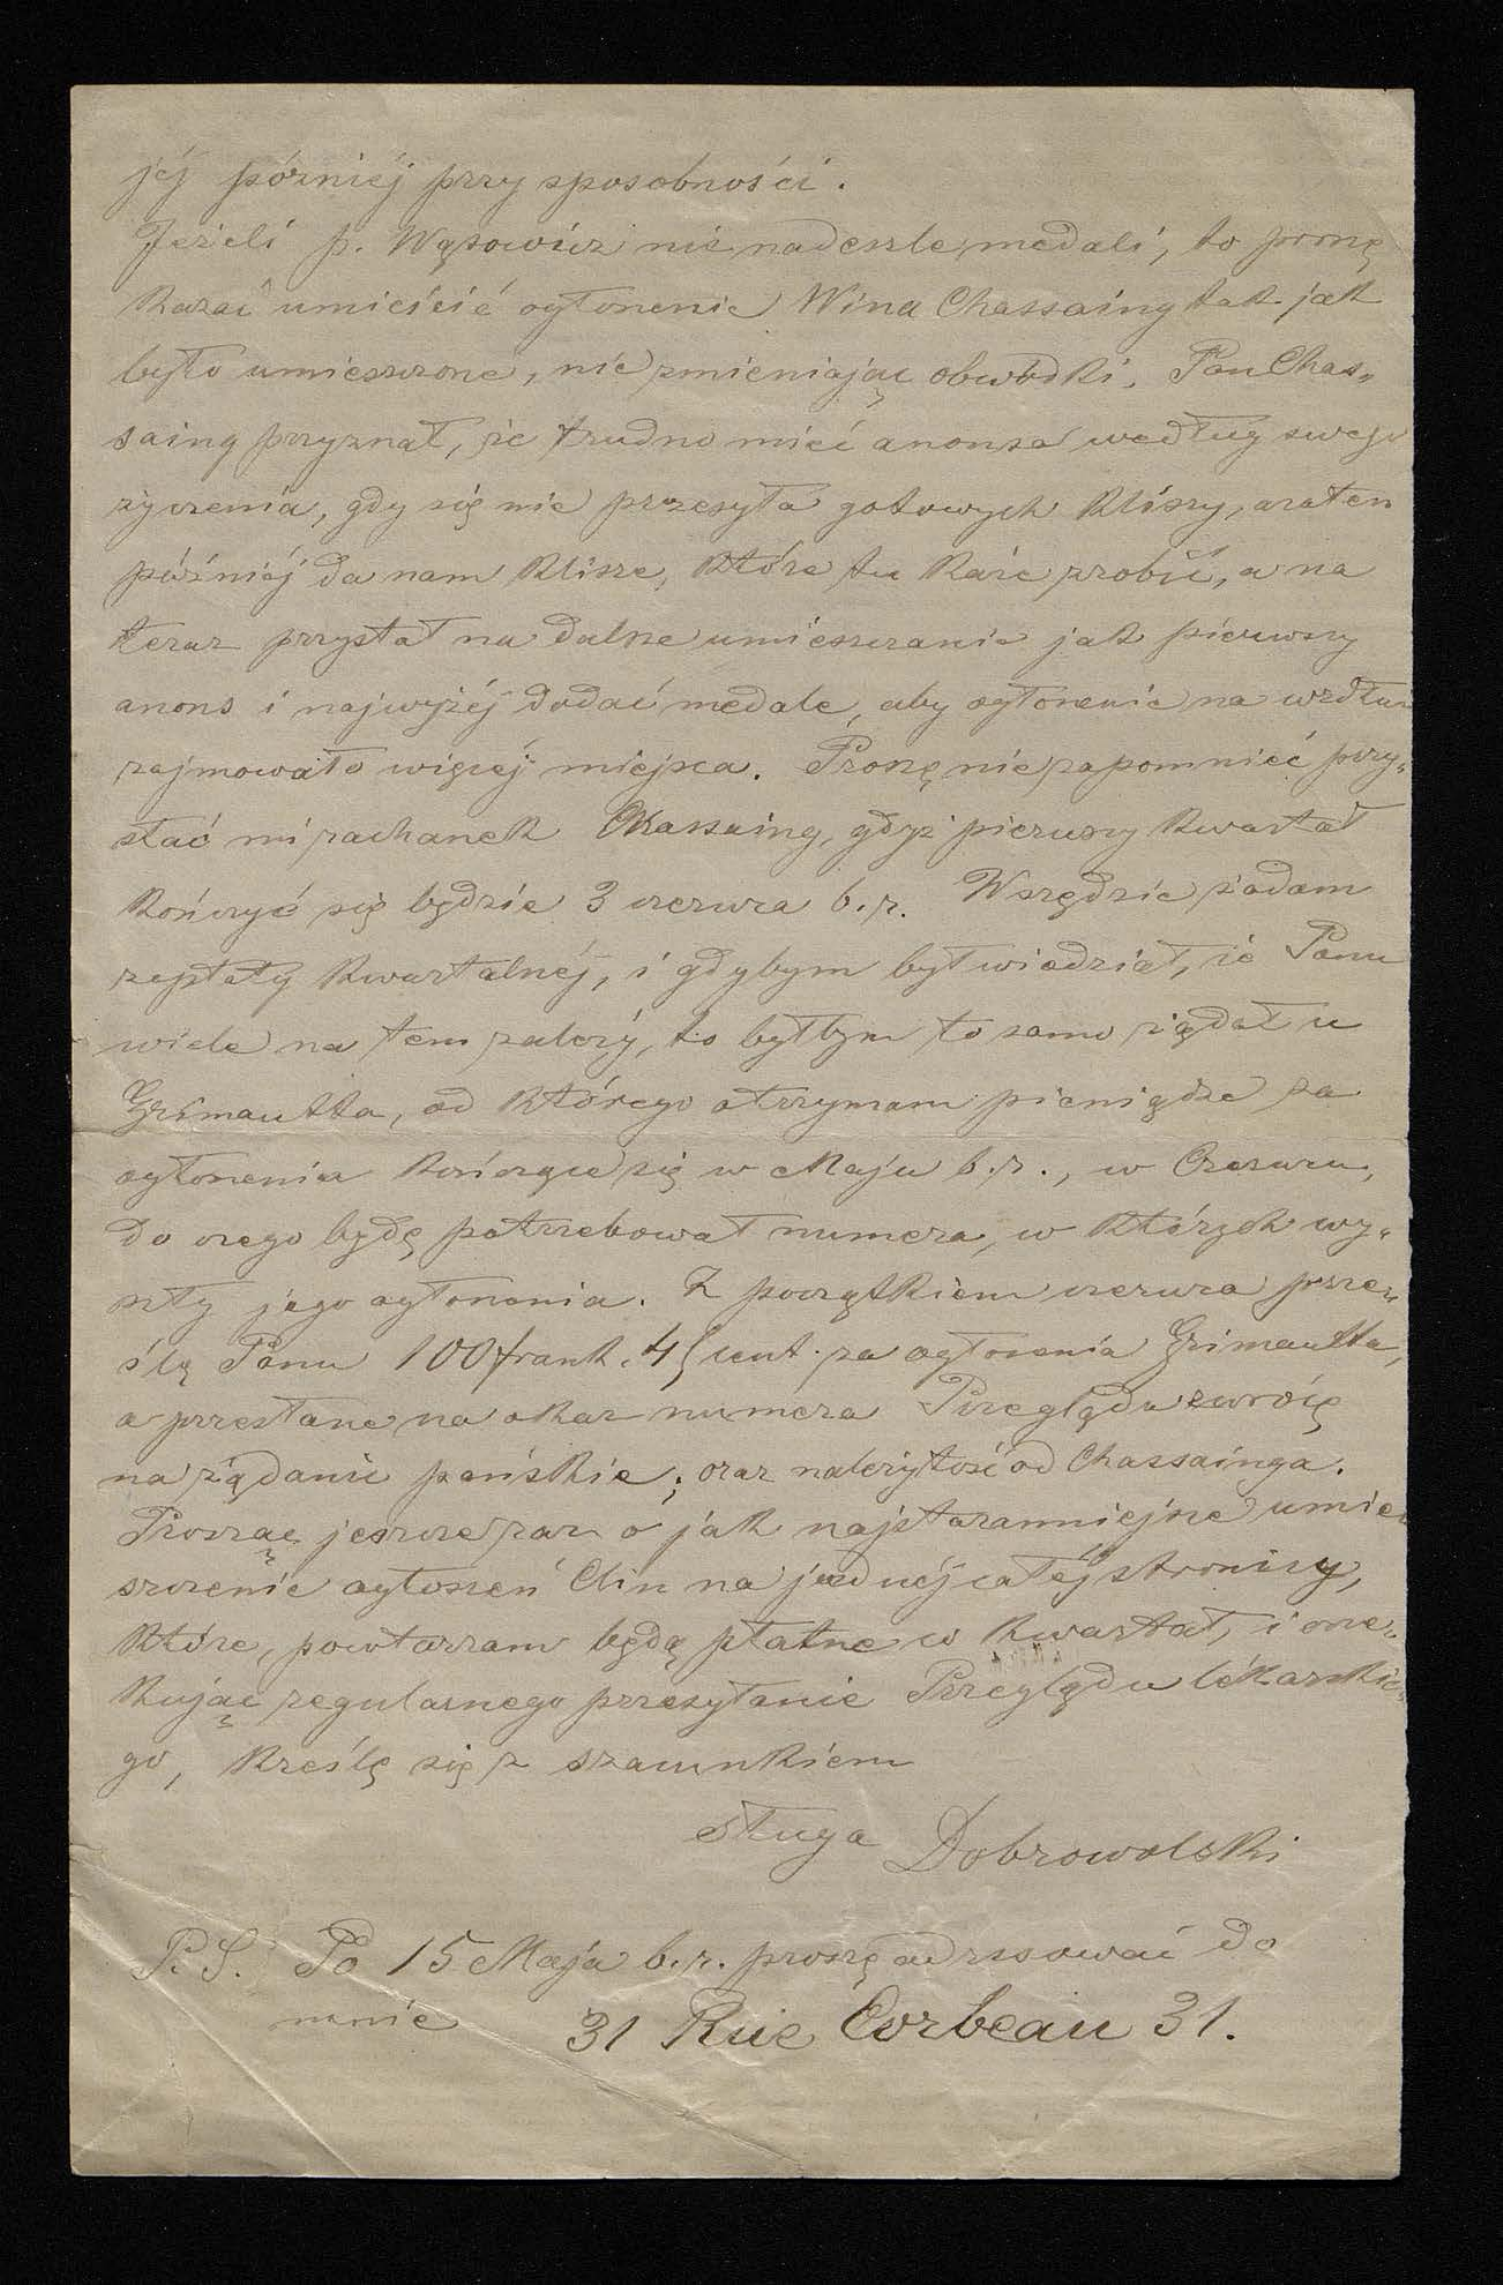 jéj późniéj przy sposobności.
Jeżeli p. Wąsowicz nie nadeszle medali, to proszę
kazać umieścić ogłoszenie Wina Chassaing tak jak
było umieszczone, nie zmieniając obwódki. Pan Chas„
saing przyznał, że trudno mieć anonsa według swego
życzenia, gdy się nie przesyła gotowych kliszy, zatem
późniéj da nam klisze, które tu każe zrobić, a na
teraz przystał na dalsze umieszczanie jak pierwszy
anons i najwyżéj dodać medale, aby ogłoszenie na wzdłuż
zajmowało więcéj miejsca. Proszę nie zapomnieć przy„
słać mi rachunek Chassaing, gdyż pierwszy kwartał
kończyć się będzie 3 czerwca b.r. Wszędzie żądam
zapłaty kwartalnéj, i gdybym był wiedział, że Panu
wiele na tem zależy, to byłbym to samo żądał u
Grimaulta, od którego otrzymam pieniądze za
ogłoszenia kończące się w Maju b.r., w Czerwcu,
do czego będę potrzebował numera, w których wy„
szły jego ogłoszenia. Z początkiem czerwca prze„
ślę Panu 100 frank. 45 cent. za ogłoszenia Grimaulta,
a przesłane na okaz numera Przeglądu zwrócę
na żądanie pańskie; oraz należytość od Chassainga.
Prosząc jeszcze raz o jak najstaranniejsze umie„
szczenie ogłoszeń Clin na jednéj całéj stronicy,
które, powtarzam będą płatne w kwartał, i ocze„
kując regularnego przesyłanie Przeglądu lékarskie„
go, kreślę się z szacunkiem
sługa Dobrowolski
P. S. Po 15 Maja b.r. proszę adresować do
mnie 31 Rue Corbeau 31.